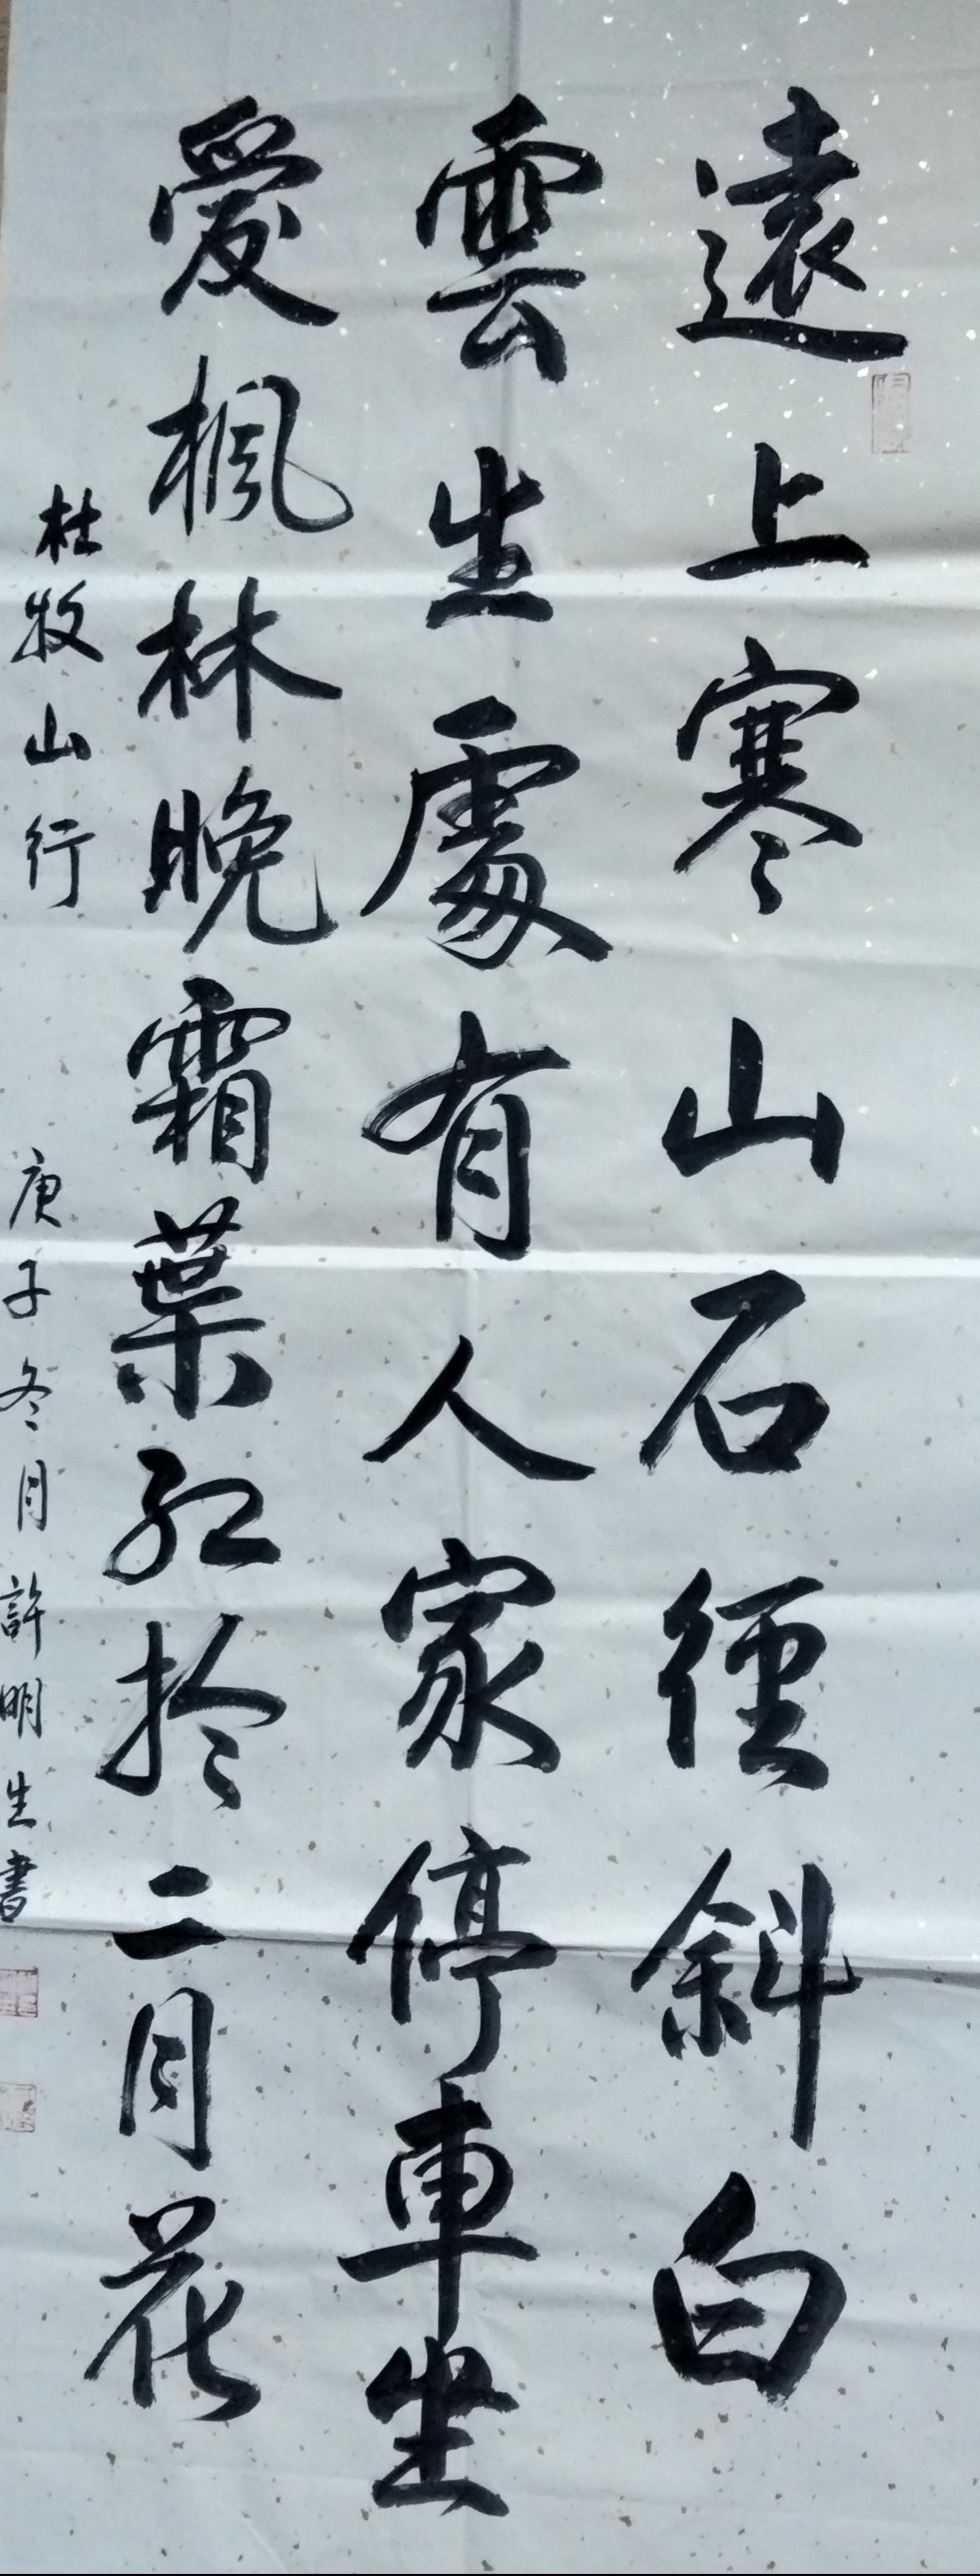 遠上寒山石徑斜白
雲生處有人家停車坐
愛楓林晚霜葉紅於二月花
杜牧山行 庚子冬月許明生書